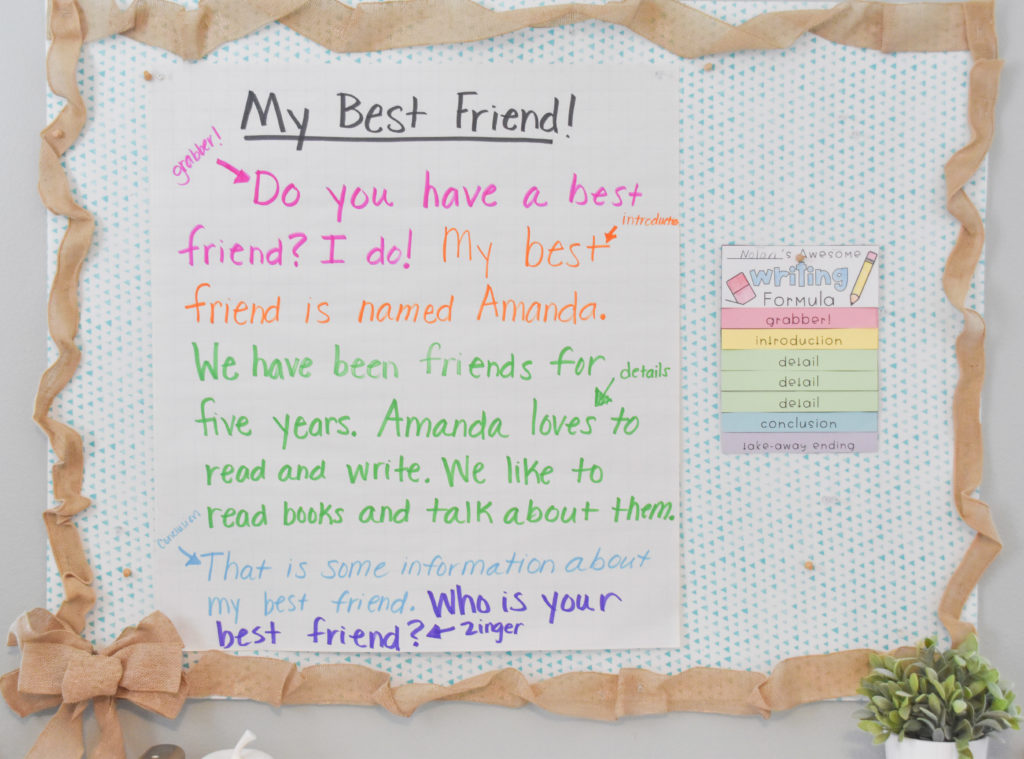 My Best Friend!
grabber!
Do you have a best
introduction
friend? I do! My best
friend is named Amanda.
We have been friends for
details
five years. Amanda loves to
read and write. We like to
read books and talk about them.
conclusion
That is some information about
my best friend. Who is your
best friend? Zinger
's Awesome
writing
Formula
grabber!
introduction
detail
detail
detail
conclusion
take-away ending